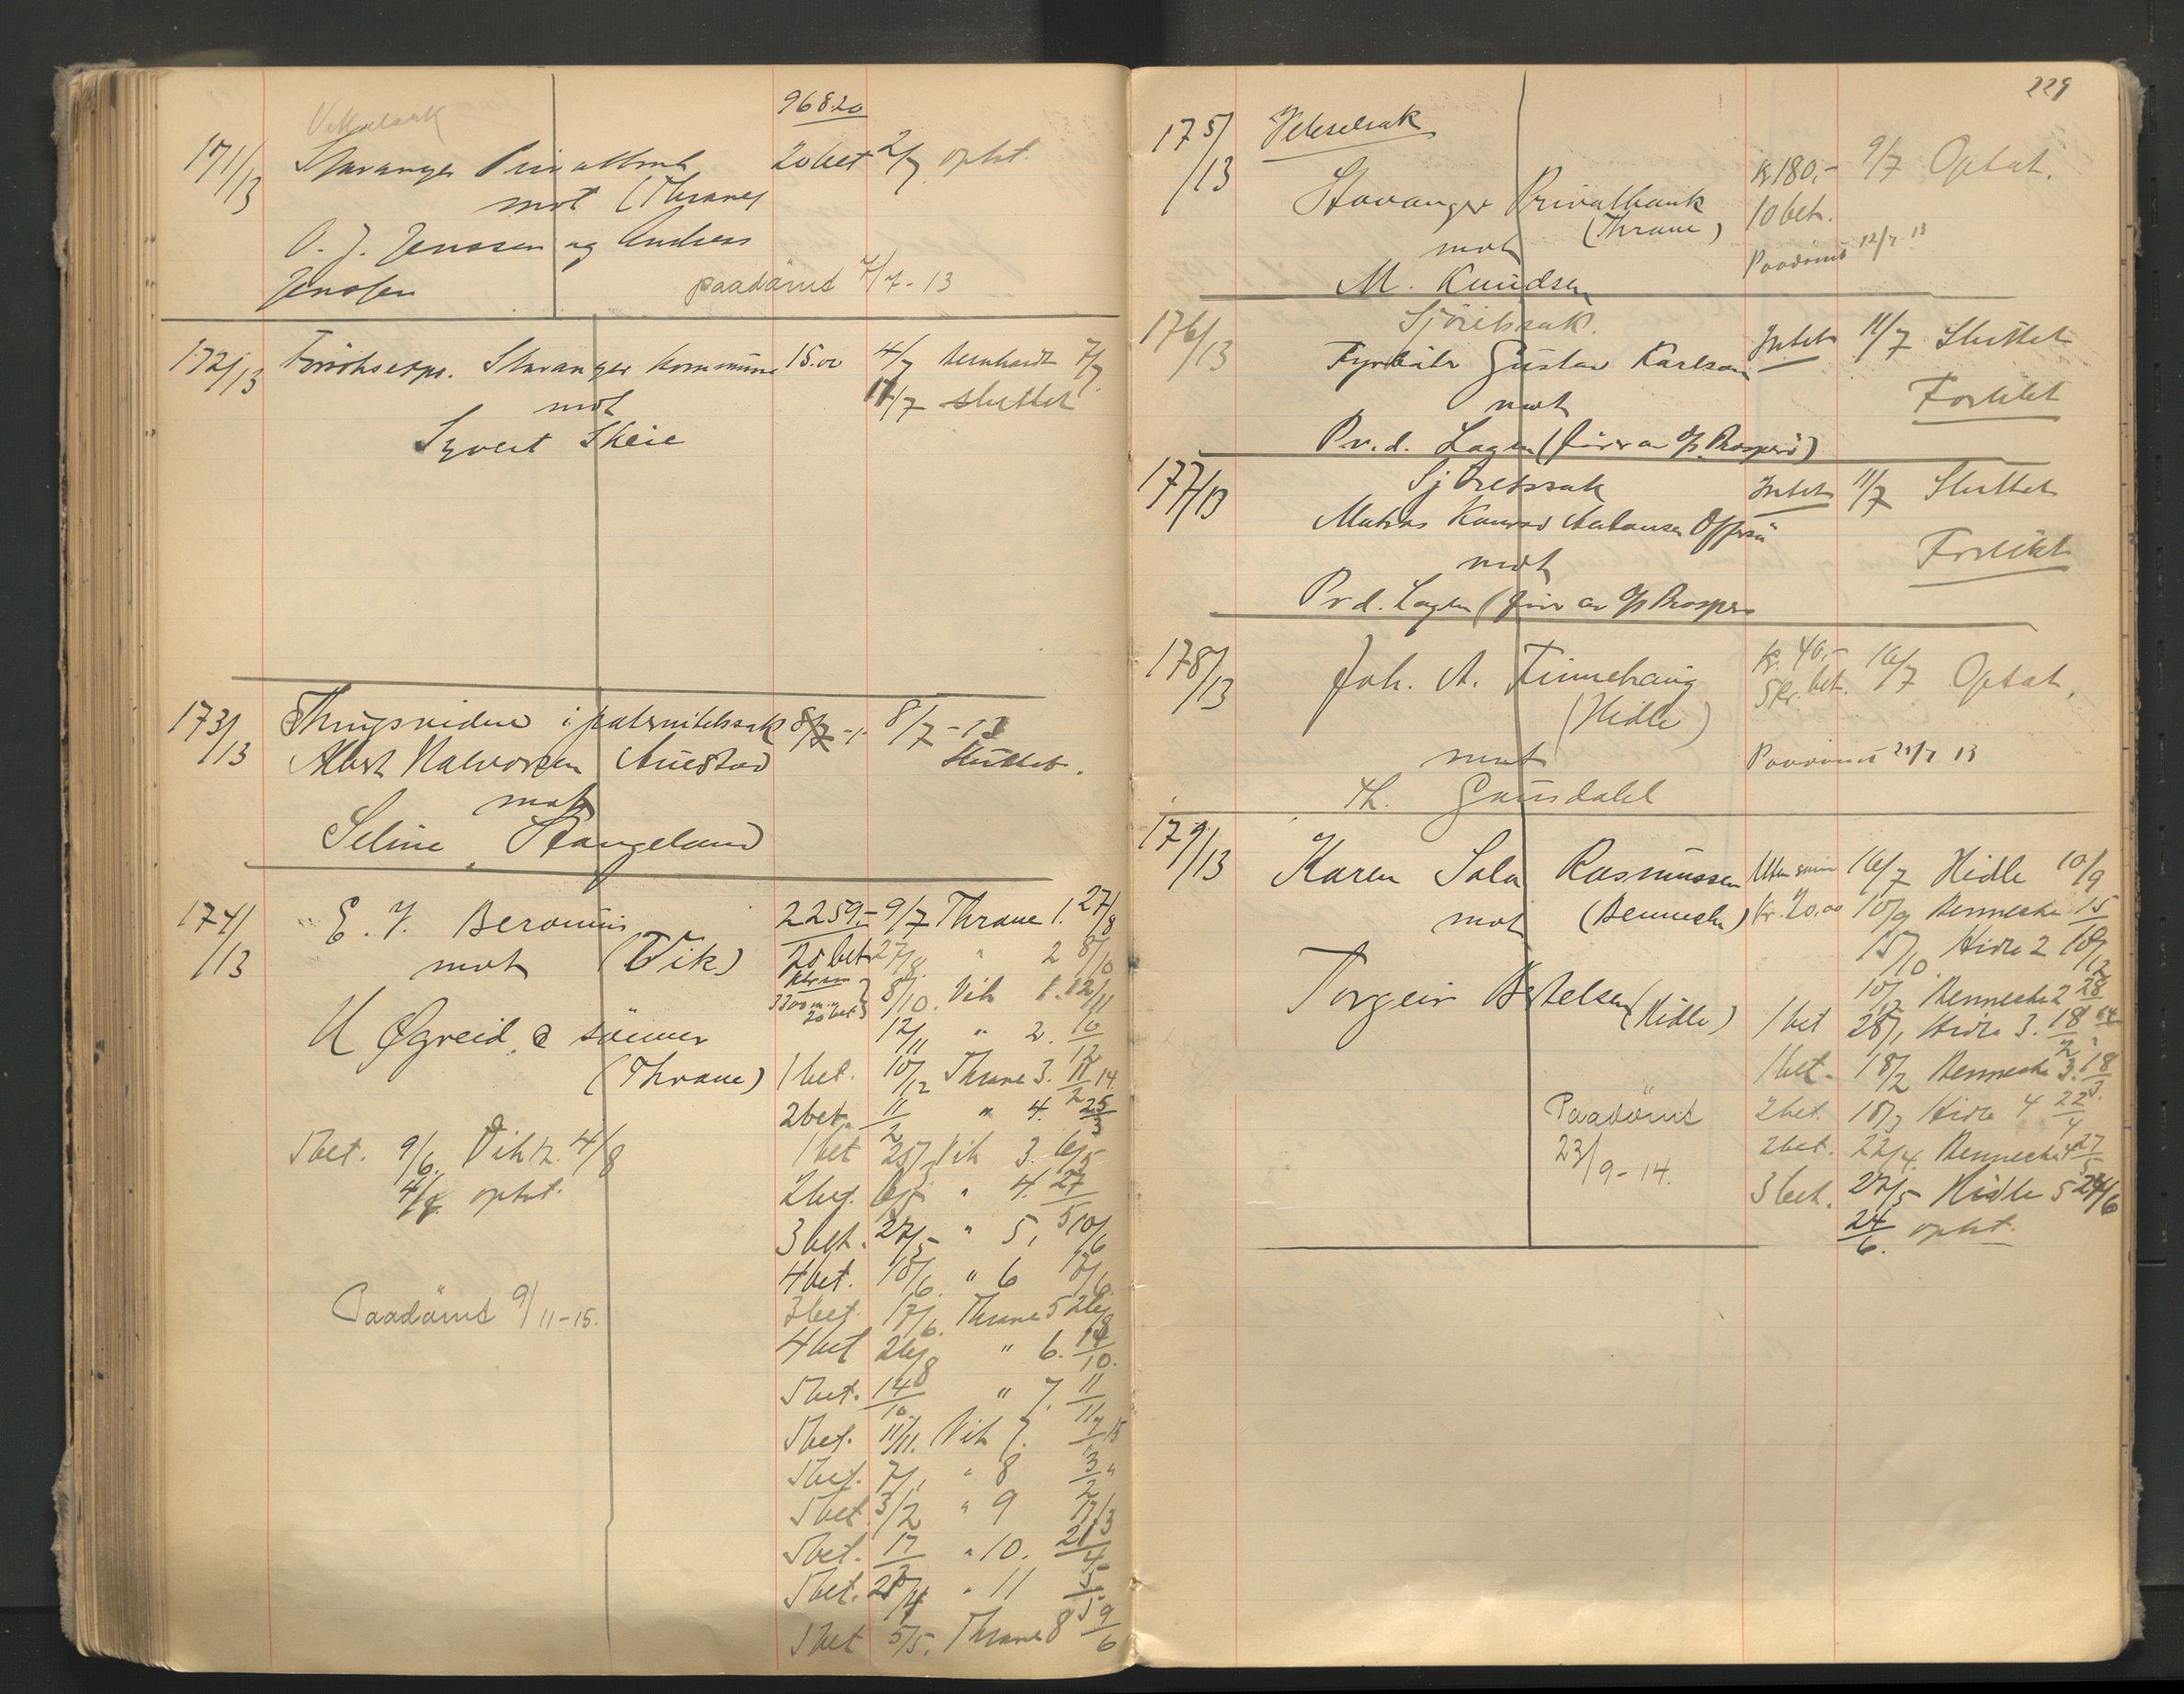 96820
Vekselsak
171/13 Stavanger Privatbank 20 bet 2/7 opt.
mot (Thrane)
O. J. Jenssen og Andreas
Jenssen paadömt 7/7-13
172/13 Stavanger Kommune 15.00 4/7 Bernhardt 7/7
mot 11/7 sluttet
Syvert Skeie
173/13 Thingsvidne i paternitetssak 8/7-1 8/7-13
Albert Halvorsen Auestad sluttet.
mot
Seline Stangeland
174/13 E. F. Beronius 2259.- 9/7 Thrane 1. 27/8
mot (Vik) 20 bet 27/8 " 2 8/10
20 bet 8/10. Vik 1. 12/11
U Øgreid & sönner 12/11 " 2. 10/12
(Thrane) 1 bet. 10/12 Thrane 3. 11/2 14.
2 bet. 11/2 " 4. 25/3
5 bet. 9/6. Vik 12. 4/8 1 bet 25/3 Vik 3. 6/5
4/8 optat. 2 bet. 6/5 " 4. 27/5
3 bet. 27/5 " 5, 10/6
4 bet. 10/6. " 6 17/6
Paadömt 9/11-15. 3 bet. 17/6. Thrane 5 26/8
4 bet 26/8 " 6. 14/10.
5 bet. 14/10. " 7. 11/11
5 bet. 11/11. Vik 7. 7/1 15
5 bet. 7/1 " 8 3/2 "
5 bet. 3/2 " 9 17/3
5 bet. 17/3 " 10. 21/4
5 bet. 21/4 " 11 5/5
5 bet 5/5. Thrane 8 9/6
229
175/13 Vekselsak
Kr 180,- 9/7 Optat.
Stavanger Privatbank 10 bet.
mot (Thrane)
Paadömt 12/7 13
M. Knudsen
176/13 Sjöretssak. Intet 11/7 Sluttet
Fyrböter Gustav Karlson
mot Forlikt
Pr. d. Lagen (förer av S/S Prospero)
177/13 Sjöretssak Intet 11/7 Sluttet
Matros Konrad
mot Forlikt
Pr d. Lagen (förer av S/S Prospero
178/13 Joh. A. Finnehaug Kr. 40,- 16/7 Optat.
(Hidle) 5 kr. bet.
mot Paadömt 21/7 13
Th. Gausdahl
179/13 Karen Sala Rasmussen 16/7 Hidle 10/9
mot (Benneche) Kr. 20.00 10/9 Benneche 15/10
15/10 Hidle 2 10/12
Torgeir Bertelsen 10/12 Benneche 2 28/1
(Hidle) 1 bet 28/1 Hidle 3. 18/2
1 bet. 18/2 Benneche 3. 18/3
Paadömt 2 bet. 18/3 Hidle 4 22/4
23/9-14. 2 bet. 22/4. Benneche 4 27/5
3 bet. 27/5 Hidle 5 24/6
24/6. optat.